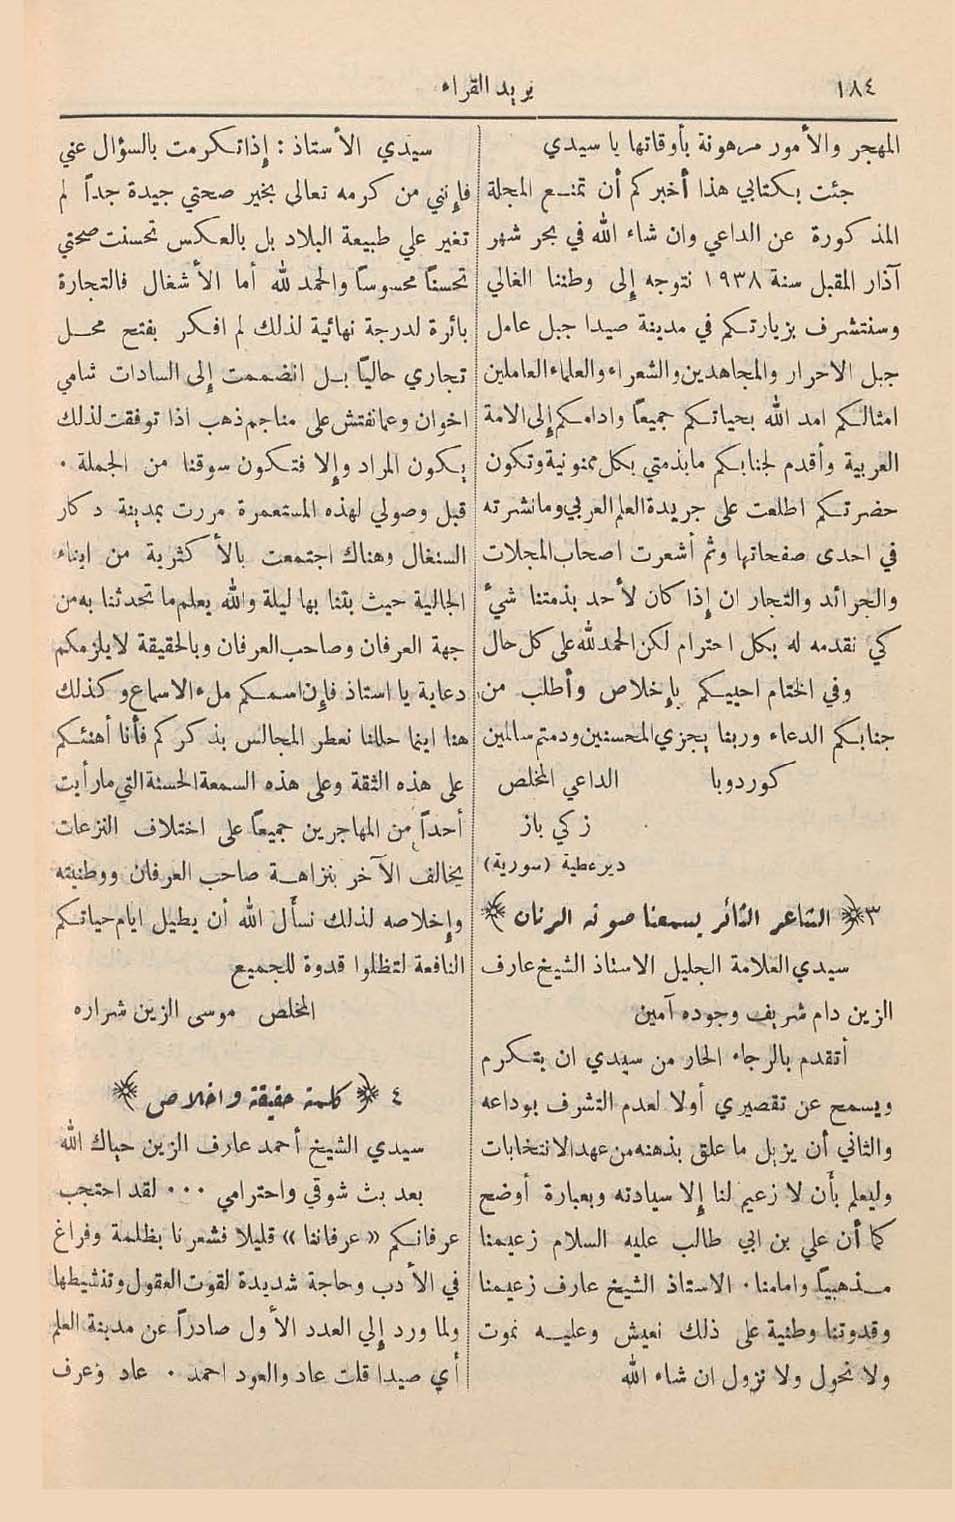 ١٨٤
بريد القراء
المهجر والأمور مرهونة بأوقاتها يا سيدي
جئت بكتابي هذا أخبركم أن تمنع المجلة
المذكورة عن الداعي وان شاء الله في بحر شهر
آذار المقبل سنة ١٩٣٨ نتوجه إلى وطننا الغالي
وسنتشرف بزيارتكم في مدينة صيدا جبل عامل
جبل الاحرار والمجاهدين والشعراء والعلماء العاملين
امثالكم امد الله بحياتكم جميعاً وادامكم إلى الامة
العربية وأقدم لجنابكم ما بذمتي بكل ممنونية وتكون
حضرتكم اطلعت على جريدة العلم العربي وما نشرته
في احدى صفحاتها وثم أشعرت اصحاب المجلات
والجرائد والتجار ان إذا كان لأحد بذمتنا شيءٌ
كي نقدمه له بكل احترام لكن الحمد لله على كل حال
وفي الختام احييكم بإخلاص وأطلب من
جنابكم الدعاء وربنا يجزي المحسنين ودمتم سالمين
كوردوبا الداعي المخلص
زكي باز
ديرعطية (سورية)
٣ ﴿ الشاعر الثائر يسمعنا صوته الرنان ﴾
سيدي العلامة الجليل الاستاذ الشيخ عارف
الزين دام شريف وجوده آمين
أتقدم بالرجاء الحار من سيدي ان يتكرم
ويسمح عن تقصيري أولا لعدم التشرف بوداعه
والثاني أن يزيل ما علق بذهنه من عهد الانتخابات
وليعلم بأن لا زعيم لنا إلا سيادته وبعبارة أوضح
كما أن علي بن ابي طالب عليه السلام زعيمنا
مذهبياً وامامنا. الاستاذ الشيخ عارف زعيمنا
وقدوتنا وطنية على ذلك نعيش وعليه نموت
ولا نحول ولا نزول ان شاء الله
سيدي الأستاذ : إذا تكرمت بالسؤال عني
فإنني من كرمه تعالى بخير صحتي جيدة جداً لم
تغير علي طبيعة البلاد بل بالعكس تحسنت صحتي
تحسناً محسوساً والحمد لله أما الأشغال فالتجارة
بائرة لدرجة نهائية لذلك لم افكر بفتح محل
تجاري حالياً بل انضممت إلى السادات شامي
اخوان وعما نفتش على مناجم ذهب اذا توفقت لذلك
يكون المراد وإلا فتكون سوقنا من الجملة .
قبل وصولي لهذه المستعمرة مررت بمدينة دكار
السنغال وهناك اجتمعت بالأكثرية من ابناء
الجالية حيث بتنا بها ليلة والله يعلم ما تحدثنا به من
جهة العرفان وصاحب العرفان وبالحقيقة لا يلزمكم
دعاية يا استاذ فإن اسمكم ملء الاسماع وكذلك
هنا اينما حللنا نعطر المجالس بذكركم فأنا أهنئكم
على هذه الثقة وعلى هذه السمعة الحسنة التي ما رأيت
أحداً من المهاجرين جميعاً على اختلاف النزعات
يخالف الآخر بنزاهة صاحب العرفان ووطنيته
وإخلاصه لذلك نسأل الله أن يطيل ايام حياتكم
النافعة لتظلوا قدوة للجميع
المخلص موسى الزين شراره
٤ ﴿ كلمة حقيقة واخلاص ﴾
سيدي الشيخ أحمد عارف الزين حياك الله
بعد بث شوقي واحترامي ... لقد احتجب
عرفانكم «عرفاننا» قليلا فشعرنا بظلمة وفراغ
في الأدب وحاجة شديدة لقوت العقول وتنشيطها
ولما ورد إلي العدد الأول صادراً عن مدينة العلم
أي صيدا قلت عاد والعود احمد . عاد وعرف